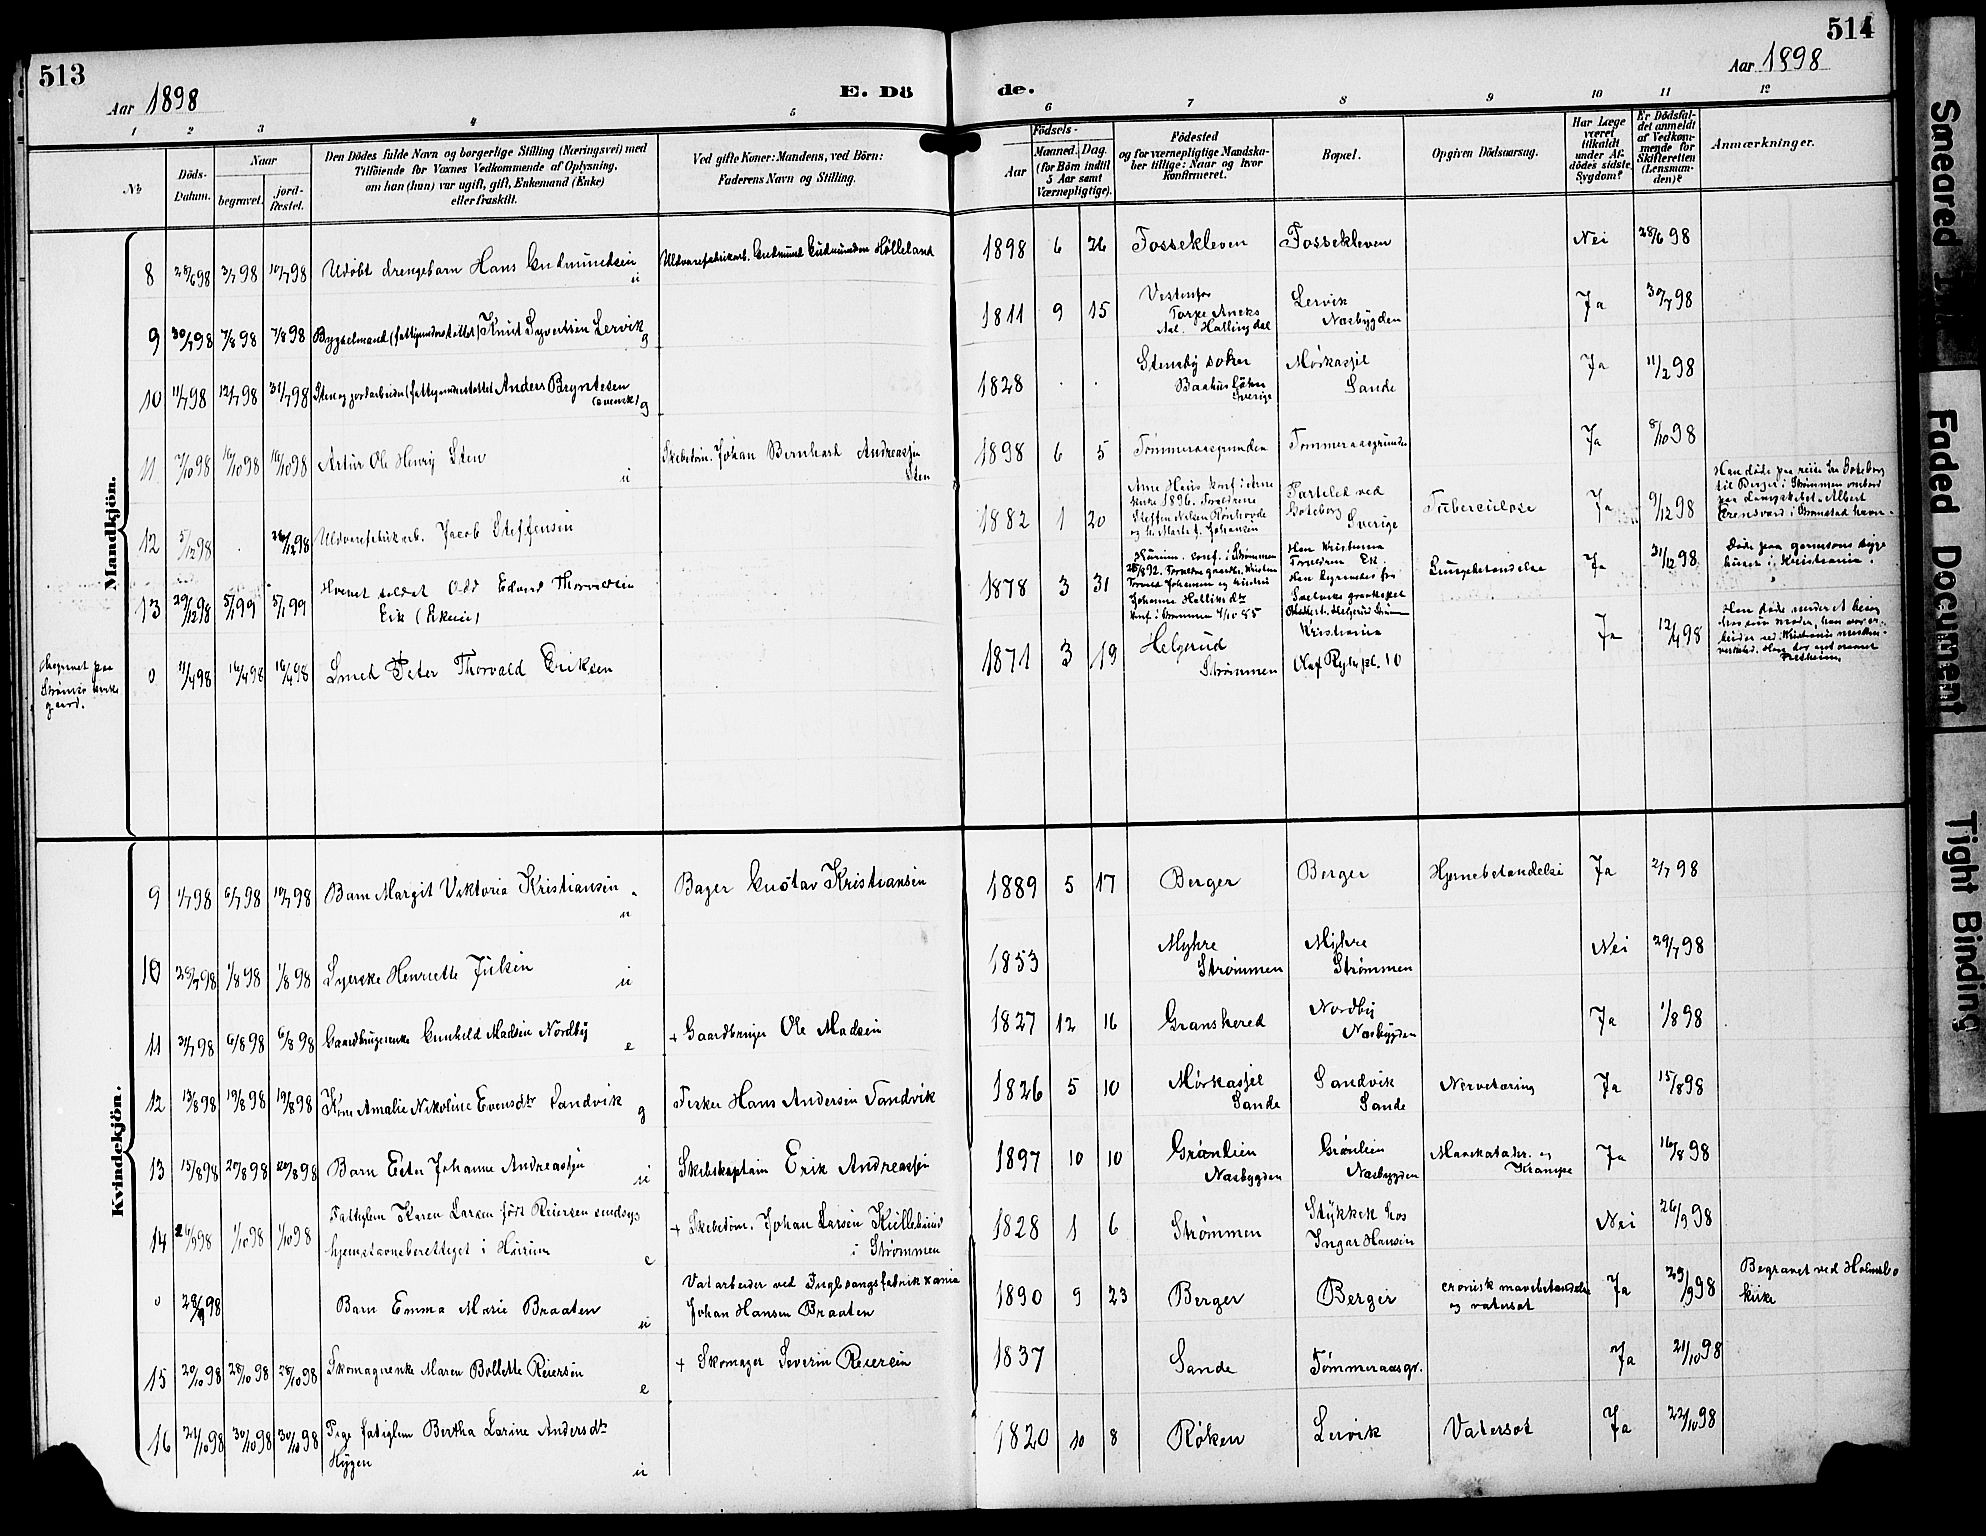 513
Aar 1898
E. Dö
de.
514
Aar 1898
1 2 3 4 5 6 7 8 9 10 11 12
No
Döds-Datum.
Naar
begravet.
jord-fæstet.
Den Dödes fulde Navn og borgerlige Stilling (Næringsvei) med
Tilföiende for Voxnes Vedkommende af Oplysning,
om han (hun) var ugift, gift, Enkemand (Enke)
eller fraskilt.
Ved gifte Koner: Mandens, ved Börn:
Faderens Navn og Stilling.
Födsels-
Aar
Maaned. Dag.
(for Börn indtil
5 Aar samt
Værnepligtige).
Födested
og for værnepligtige Mandska-
ber tillige: Naar og hvor
konfirmeret.
Bopæl.
Opgiven Dödsaarsag.
Har Læge
været
tilkaldt
under Af-
dödes sidste
Sygdom?
Er Dödsfal-
det anmeldt
af Vedkom-
mende for
Skifteretten
(Lensman-
den)?
Anmærkninger.
Mandkjön.
8 28/6 98 3/7 98 10/7 98 Udøbt drengebarn Hans Gudmundsen u
Uldvarefabrikarb. Gudmund Gudmundsen Hølleland
1898 6 26 Fossekleven Fossekleven Nei 28/6 98
9 30/7 98 7/8 98 7/8 98 Bygselmand (fattigunderstøttet) Knut Syvertsen Lervik g
1811 9 15 Vestenfor
Torpe Aneks
Aal. Hallingdal
Lervik
Næsbygden
Ja 30/7 98
10 11/7 98 12/7 98 31/7 98 Sten og jordarbeider (fattigunderstøttet Anders Bryntesen
(svensk) g
1828 . . Stensby soken
Baahus Løhn
Sverige
Mørkassjel
Sande
Ja 11/7 98
11 7/10 98 16/10 98 16/10 98 Artur Ole Henry Sten u
Skibstøm. Johan Bernhard Andreassen
Sten
1898 6 5 Tømmeraasgrunden Tømmeraasgrunden Ja 8/10 98
12 5/12 98 . 26/12 98 Uldvarefabrikarb. Jacob Steffensen
1882 1 20
1896. Forældrene
Steffen Nilsen
Parteled ved
Gøteborg
Sverige
Tuberculose Ja 9/12 98
Han døde paa reise fra Gøteborg
til Berger i Strømmen ombord
paa Dampskibet Albert
i Strømstad havn.
13 29/12 98 5/1 99 5/1 99 Hvervet soldat Odd Edvard Thorvaldsen
Eik (Ekeii)
1878 3 31 Hurum. conf. i Strømmen
Johanne
Hans Kristiania
Forældrene Eik.
Han begravedes fra
Lungebetændelse Ja 31/12 98
Døde paa garnisons syge
huset i Kristiania.
Begravet paa
Strømmen kirke
gaard.
0 11/4 98 16/4 98 16/4 98 Smed Peter Thorvald Eriksen
1871 3 19 Helgerud
Strømmen
Kristiania
Olaf Ryes pl. 10
Ja 12/4 98
Han døde under et besøg
hos sin moder, han var ar-
beider ved Kristiania mekan.
Kvindekjön.
9 1/7 98 6/7 98 10/7 98 Barn Margit Viktoria Kristiansen u
Bager Gustav Kristiansen
1889 5 17 Berger Berger Hjernebetændelse Ja 2/7 98
10 28/7 98 1/8 98 1/8 98 Syerske Henriette Julsen u
1853 Myhre
Strømmen
Myhre
Strømmen
Nei 29/7 98
11 31/7 98 6/8 98 6/8 98 Gaardbrugerenke Gunhild Madsen Nordby e
+ Gaardbruger Ole Madsen
1827 12 16 Gransherad Nordby
Næsbygden
Ja 1/8 98
12 13/8 98 19/8 98 19/8 98 Kone Amalie Nikoline Evensdtr Sandvik g
Fisker Hans Andersen Sandvik
1826 5 10 Mørkassjel
Sande
Sandvik
Sande
Nervetæring Ja 15/8 98
13 15/8 98 20/8 98 20/8 98 Barn Ester Johanne Andreassen u
Skibskaptain Erik Andreassen
1897 10 10 Grønlien
Næsbygden
Grønlien
Næsbygden
Mavekatahr. og
Krampe
Ja 16/8 98
14 26/9 98 1/10 98 1/10 98 Fattiglem Karen Larsen født Reiersen sindsyg
hjemstavnsberettiget i Hurum e
+ Skibstøm. Johan Larsen Kullebund
i Strømmen
1828 1 6 Strømmen Stykket hos
Ingar Hansen
Nei 26/9 98
0 28/9 98 Barn Emma Marie Braaten u
Vatarbeider ved Fuglesangsfabrik
Johan Hansen Braaten
1890 9 23 Berger Berger cronisk mavebetændelse
og vatersot
Ja 29/9 98
Begravet ved Holmsbo
kirke
15 20/10 98 28/10 98 28/10 98 Skomagerenke Maren Bollette Reiersen e
+ Skomager Severin Reiersen
1837 Sande Tømmeraasgr. Ja 21/10 98
16 21/10 98 30/10 98 30/10 98 Pige fatiglem Bertha Larine Andersdtr
Hygen u
1820 10 8 Røken Lervik Vatersot Ja 22/10 98
Smeared
Faded Document
Tight Binding